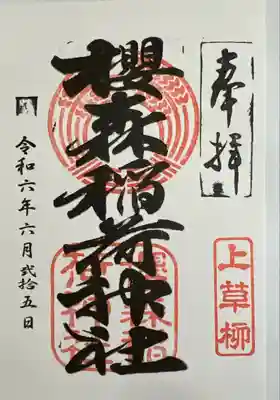 奉拝
上草柳
櫻森稲荷神社
令和六年六月弐拾五日